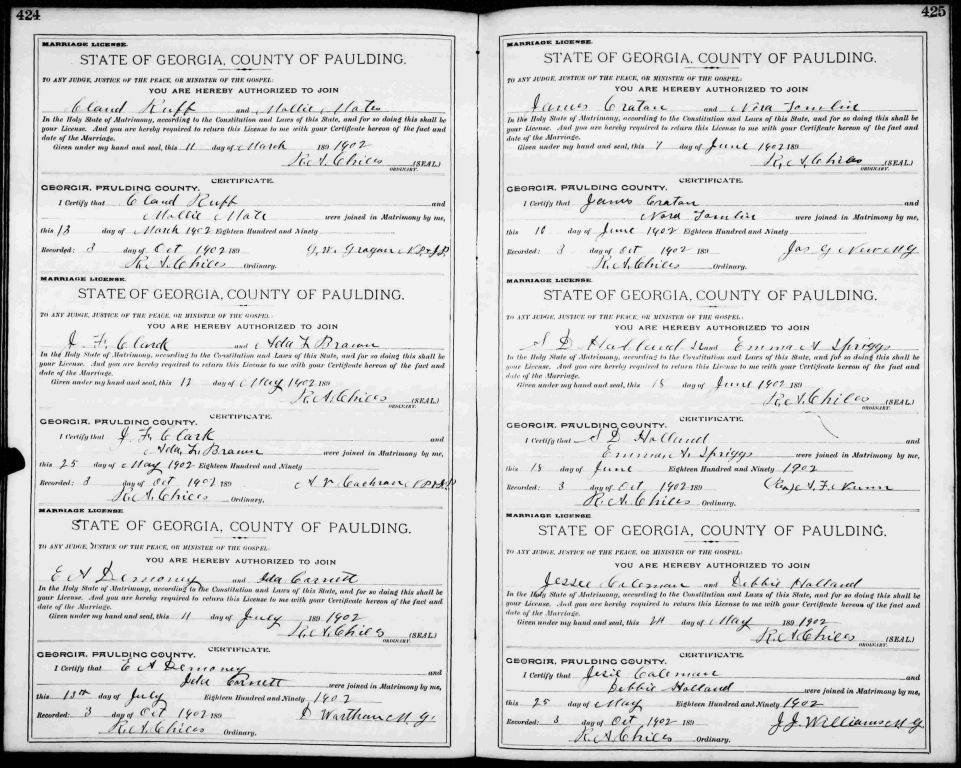 424
MARRIAGE LICENSE.
STATE OF GEORGIA, COUNTY OF PAULDING.
TO ANY JUDGE, JUSTICE OF THE PEACE, OR MINISTER OF THE GOSPEL:
YOU ARE HEREBY AUTHORIZED TO JOIN
Claud Ruff and Mollie Mate
In the Holy State of Matrimony, according to the Constitution and Laws of this State, and for so doing this shall be
your License. And you are hereby required to return this License to me with your Certificate hereon of the fact and
date of the Marriage.
Given under my hand and seal, this 11 day of March 189 1902
R. A. Chiles (SEAL.)
ORDINARY.
CERTIFICATE.
GEORGIA, PAULDING COUNTY.
I Certify that Claud Ruff and
Mollie Mate were joined in Matrimony by me,
this 13 day of March 1902 Eighteen Hundred and Ninety
Recorded: 3 day of Oct 1902 189 G. W. Gragan N.P.&J.P.
R. A. Chiles Ordinary.
MARRIAGE LICENSE.
STATE OF GEORGIA, COUNTY OF PAULDING.
TO ANY JUDGE, JUSTICE OF THE PEACE, OR MINISTER OF THE GOSPEL:
YOU ARE HEREBY AUTHORIZED TO JOIN
J. F. Clark and Ada L Brown
In the Holy State of Matrimony, according to the Constitution and Laws of this State, and for so doing this shall be
your License. And you are hereby required to return this License to me with your Certificate hereon of the fact and
date of the Marriage.
Given under my hand and seal, this 12 day of May 1902 189
R. A. Chiles (SEAL.)
ORDINARY.
CERTIFICATE.
GEORGIA, PAULDING COUNTY.
I Certify that J. F. Clark and
Ada L. Brown were joined in Matrimony by me,
this 25 day of May 1902 Eighteen Hundred and Ninety
Recorded: 3 day of Oct 1902 189 A. V. Cochran N.P.&J.P
R. A. Chiles Ordinary.
MARRIAGE LICENSE.
STATE OF GEORGIA, COUNTY OF PAULDING.
TO ANY JUDGE, JUSTICE OF THE PEACE, OR MINISTER OF THE GOSPEL:
YOU ARE HEREBY AUTHORIZED TO JOIN
E A Demoney and Ida Cornett
In the Holy State of Matrimony, according to the Constitution and Laws of this State, and for so doing this shall be
your License. And you are hereby required to return this License to me with your Certificate hereon of the fact and
date of the Marriage.
Given under my hand and seal, this 11 day of July 189 1902
R. A. Chiles (SEAL.)
ORDINARY.
CERTIFICATE.
GEORGIA, PAULDING COUNTY.
I Certify that E A Demoney and
Ida Cornett were joined in Matrimony by me,
this day of July Eighteen Hundred and Ninety 1902
Recorded: 3 day of Oct 1902 189 Warthan M.G.
R. A. Chiles Ordinary.
425
MARRIAGE LICENSE.
STATE OF GEORGIA, COUNTY OF PAULDING.
TO ANY JUDGE, JUSTICE OF THE PEACE, OR MINISTER OF THE GOSPEL:
YOU ARE HEREBY AUTHORIZED TO JOIN
James Cratan and Nora Tomlin
In the Holy State of Matrimony, according to the Constitution and Laws of this State, and for so doing this shall be
your License. And you are hereby required to return this License to me with your Certificate hereon of the fact and
date of the Marriage.
Given under my hand and seal, this 7 day of June 1902 189
R. A. Chiles (SEAL.)
ORDINARY.
CERTIFICATE.
GEORGIA, PAULDING COUNTY.
I Certify that James Cratan and
Nora Tomlin were joined in Matrimony by me,
this 10 day of June 1902 Eighteen Hundred and Ninety
Recorded: 3 day of Oct 1902 189 Jas G New M G
R. A. Chiles Ordinary.
MARRIAGE LICENSE.
STATE OF GEORGIA, COUNTY OF PAULDING.
TO ANY JUDGE, JUSTICE OF THE PEACE, OR MINISTER OF THE GOSPEL:
YOU ARE HEREBY AUTHORIZED TO JOIN
S D Holland and Emma A Spriggs
In the Holy State of Matrimony, according to the Constitution and Laws of this State, and for so doing this shall be
your License. And you are hereby required to return this License to me with your Certificate hereon of the fact and
date of the Marriage.
Given under my hand and seal, this 18 day of June 1902 189
R. A. Chiles (SEAL.)
ORDINARY.
CERTIFICATE.
GEORGIA, PAULDING COUNTY.
I Certify that S D Holland and
Emma A. Spriggs were joined in Matrimony by me,
this 18 day of June Eighteen Hundred and Ninety 1902
Recorded: 3 day of Oct. 1902 189 F. Nunn
R. A. Chiles Ordinary.
MARRIAGE LICENSE.
STATE OF GEORGIA, COUNTY OF PAULDING.
TO ANY JUDGE, JUSTICE OF THE PEACE, OR MINISTER OF THE GOSPEL:
YOU ARE HEREBY AUTHORIZED TO JOIN
Jessee Coleman and Debbie Holland
In the Holy State of Matrimony, according to the Constitution and Laws of this State, and for so doing this shall be
your License. And you are hereby required to return this License to me with your Certificate hereon of the fact and
date of the Marriage.
Given under my hand and seal, this 24 day of May 189 1902
R. A. Chiles (SEAL.)
ORDINARY.
CERTIFICATE.
GEORGIA, PAULDING COUNTY.
I Certify that Jesie Coleman and
Debbie Holland were joined in Matrimony by me,
this 25 day of May Eighteen Hundred and Ninety 1902
Recorded: 3 day of Oct 1902 189 J. J. Williams M G
R. A. Chiles Ordinary.